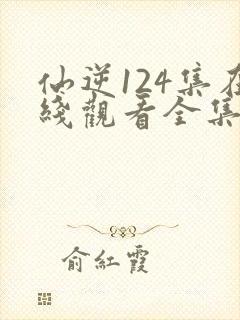 仙逆124集在
綫觀看全集
俞紅霞